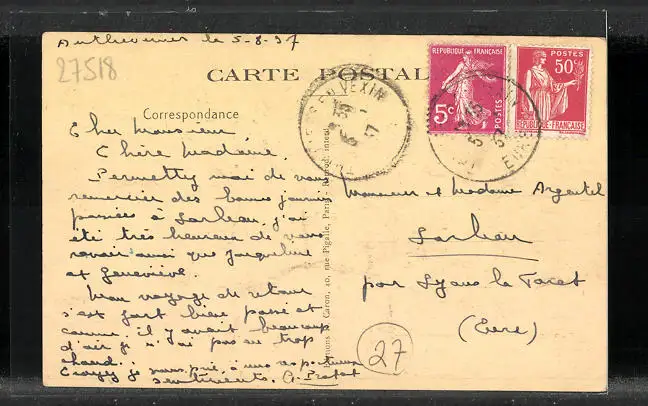 Authevernes le 5-8-37
27518
CARTE POSTAL
Correspondance
Cher Monsieur,
Chère Madame.
Permettez moi de vous
remercier des bonnes journées
passées à Sorbeau, j'ai
été très heureux de vous
revoir ainsi que Jacqueline
et Geneviève.
Mon voyage de retour
s'est fort bien passé et
comme il y avait beaucoup
d'air je n'ai pas eu trop
chaud.
Croyez je vous prie, à mes respectueux
sentiments.
Caron, 40, rue Pigalle, Paris. Reprod. interd.
EN VEXIN
REPUBLIQUE FRANÇAISE
5c
POSTES
POSTES
50c
REPUBLIQUE-FRANÇAISE
EURE
Monsieur et Madame Argentel
par Lyons la Foret
(Eure)
27